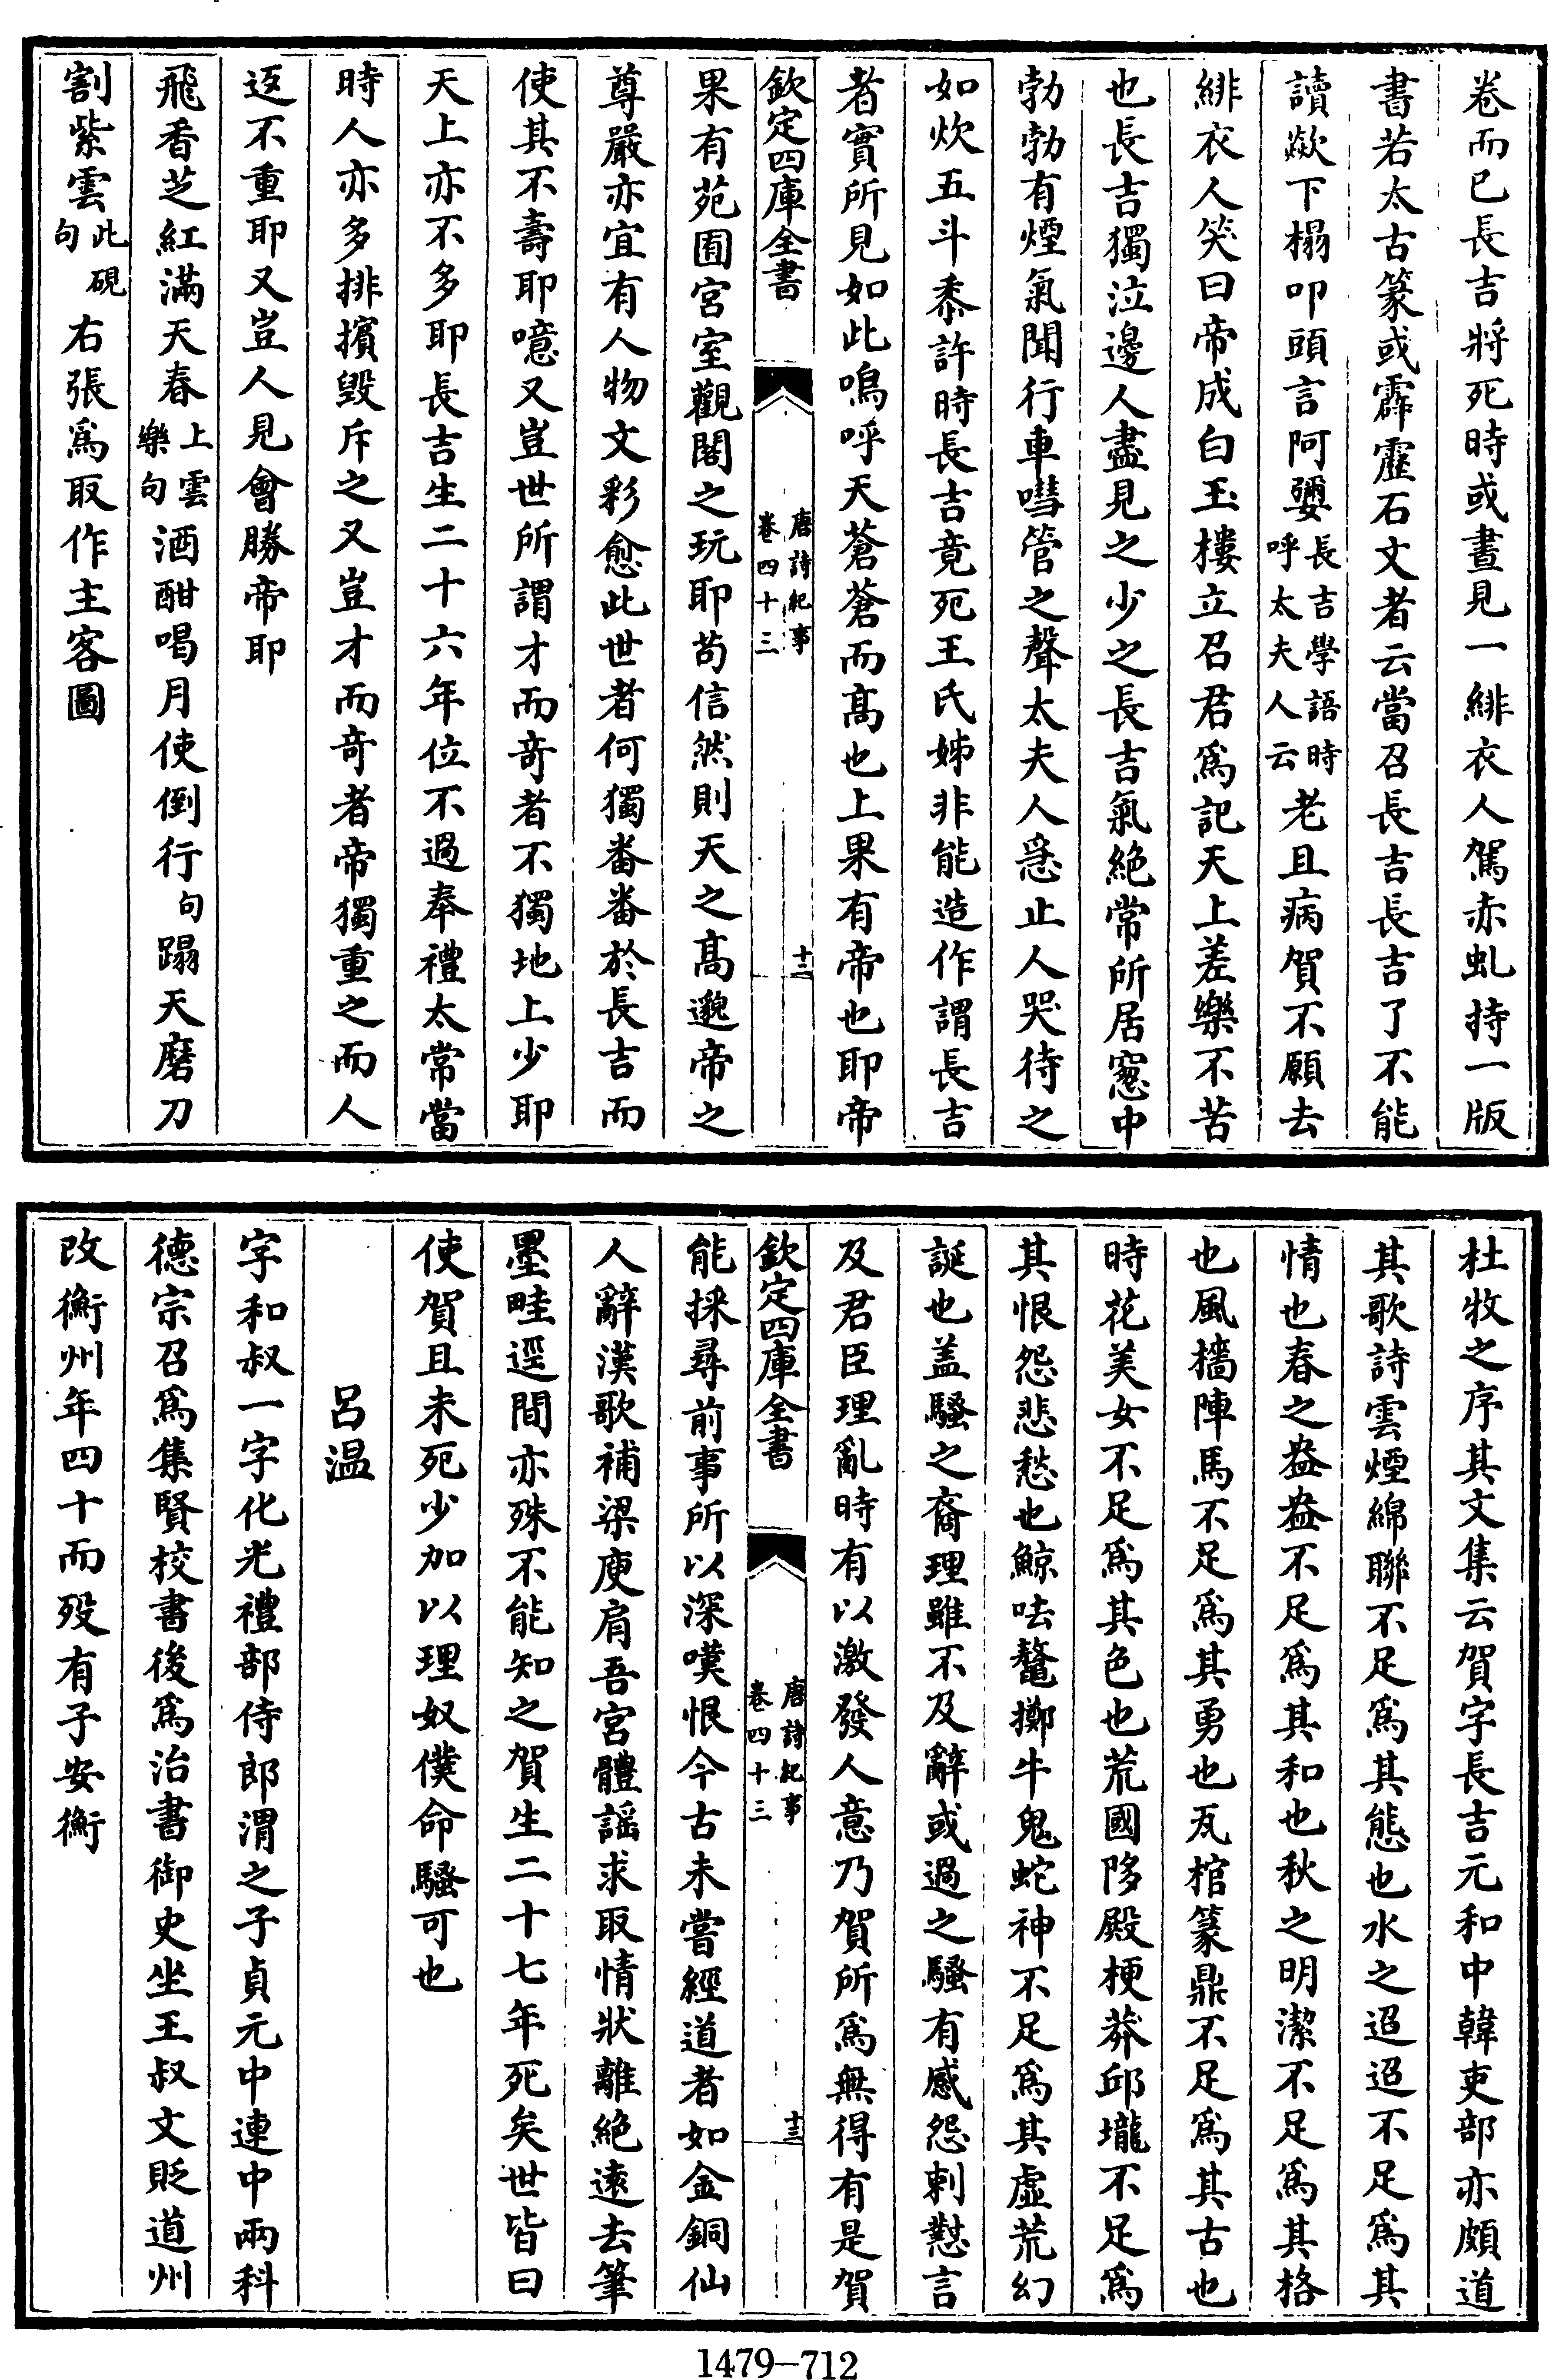 卷而已長吉將死時或晝見一緋衣人駕赤虬持一版
書若太古篆或霹靂石文者云當召長吉長吉了不能
讀歘下榻叩頭言阿㜷長吉學語時呼太夫人云老且病賀不願去
緋衣人笑曰帝成白玉樓立召君爲記天上差樂不苦
也長吉獨泣邊人盡見之少之長吉氣絶常所居窻中
勃勃有煙氣聞行車嘒管之聲太夫人急止人哭待之
如炊五斗黍許時長吉竟死王氏姊非能造作謂長吉
者實所見如此嗚呼天蒼蒼而髙也上果有帝也耶帝
欽定四庫全書
唐詩紀事
卷四十三
十二
果有苑囿宫室觀閣之玩耶苟信然則天之髙邈帝之
尊嚴亦宜有人物文彩愈此世者何獨番番於長吉而
使其不壽耶噫又豈世所謂才而竒者不獨地上少耶
天上亦不多耶長吉生二十六年位不過奉禮太常當
時人亦多排擯毁斥之又豈才而竒者帝獨重之而人
返不重耶又豈人見會勝帝耶
飛香芝紅滿天春上雲樂句酒酣喝月使倒行句蹋天磨刀
割紫雲此硯句右張爲取作主客圖
杜牧之序其文集云賀字長吉元和中韓吏部亦頗道
其歌詩雲煙綿聯不足爲其態也水之迢迢不足爲其
情也春之盎盎不足爲其和也秋之明潔不足爲其格
也風檣陣馬不足爲其勇也瓦棺篆鼎不足爲其古也
時花美女不足爲其色也荒國陊殿梗莽邱壠不足爲
其恨怨悲愁也鯨呿鼇擲牛鬼蛇神不足爲其虚荒幻
誕也盖騷之裔理雖不及辭或過之騷有感怨刺懟言
及君臣理亂時有以激發人意乃賀所爲無得有是賀
欽定四庫全書
唐詩紀事
卷四十三
十三
能採尋前事所以深嘆恨今古未嘗經道者如金銅仙
人辭漢歌補梁庾肩吾宫體謡求取情狀離絶遠去筆
墨畦逕間亦殊不能知之賀生二十七年死矣世皆曰
使賀且未死少加以理奴僕命騷可也
吕温
字和叔一字化光禮部侍郎渭之子貞元中連中兩科
德宗召爲集賢校書後爲治書御史坐王叔文貶道州
改衡州年四十而殁有子安衡
1479—712